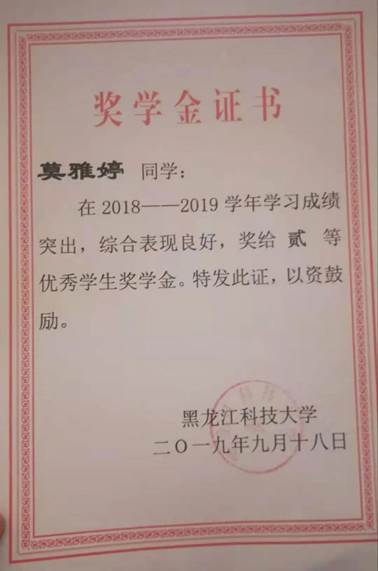 奖学金证书
莫雅婷 同学:
在 2018——2019 学年学习成绩
突出，综合表现良好，奖给 贰 等
优秀学生奖学金。特发此证，以资鼓
励。
黑龙江科技大学
二〇一九年九月十八日